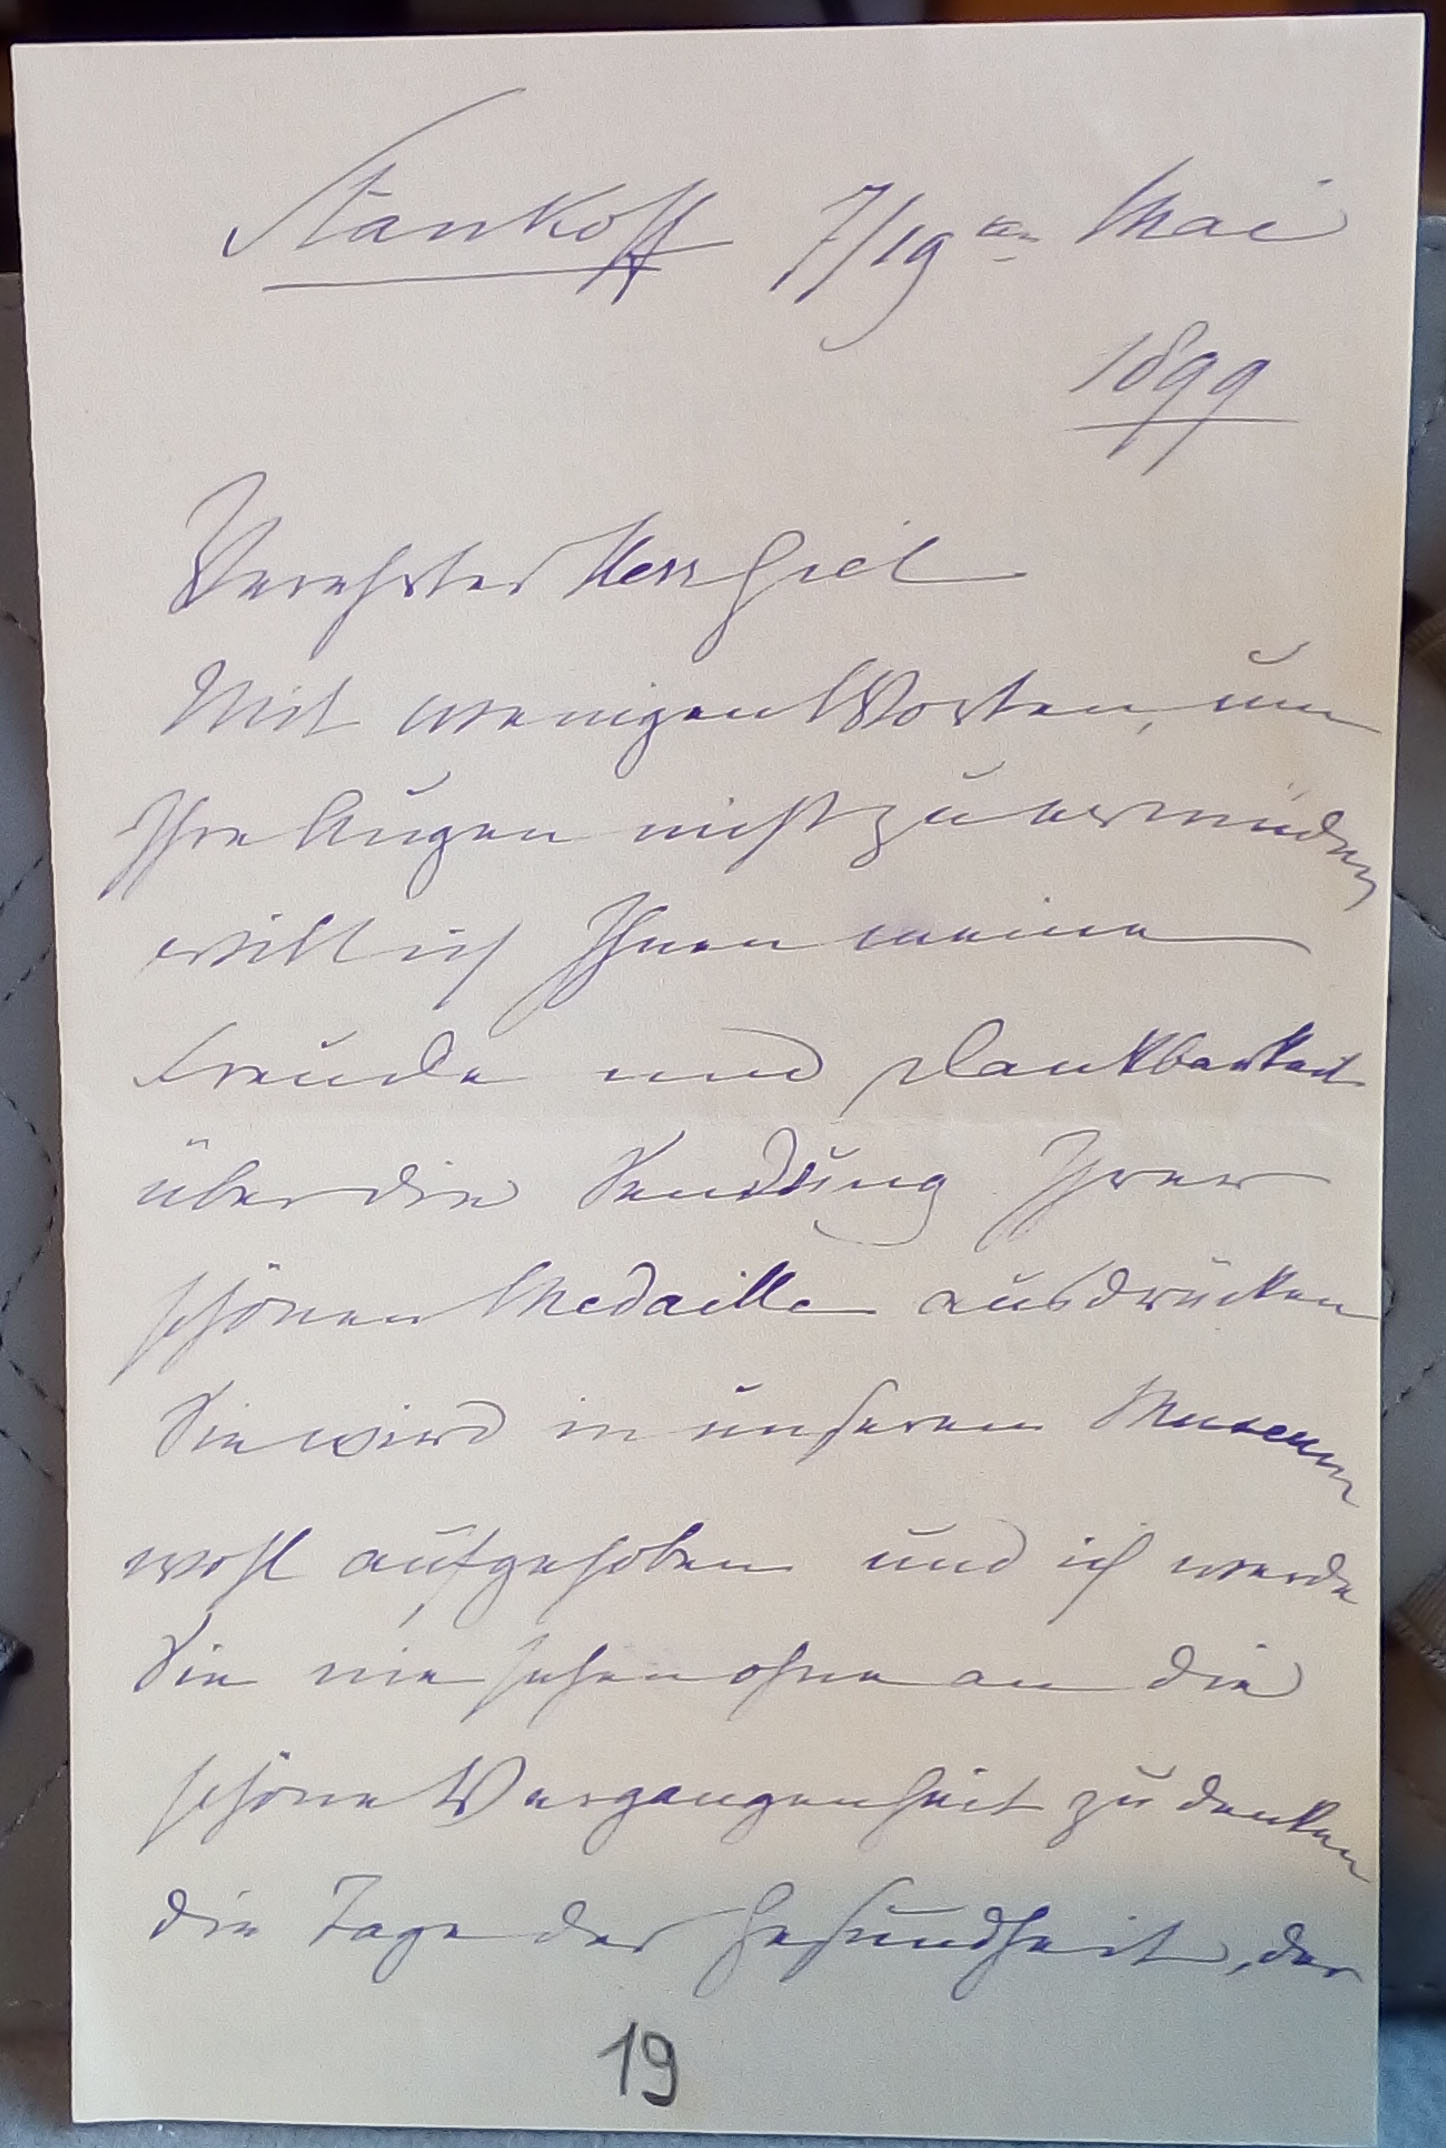 Stankoff 7/19ten Mai
1899
Verehrter Herr Giel
Mit wenigen Worten, um
Ihre Augen nicht zu ermüden
will ich Ihnen meine
Freude und Dankbarkeit
über die Sendung Ihrer
schönen Medaille ausdrücken
Sie wird in unserem Museum
wohl aufgehoben und ich werde
Sie nie sehen ohne an die
schöne Vergangenheit zu denken
die Tage der Gesundheit, der
19